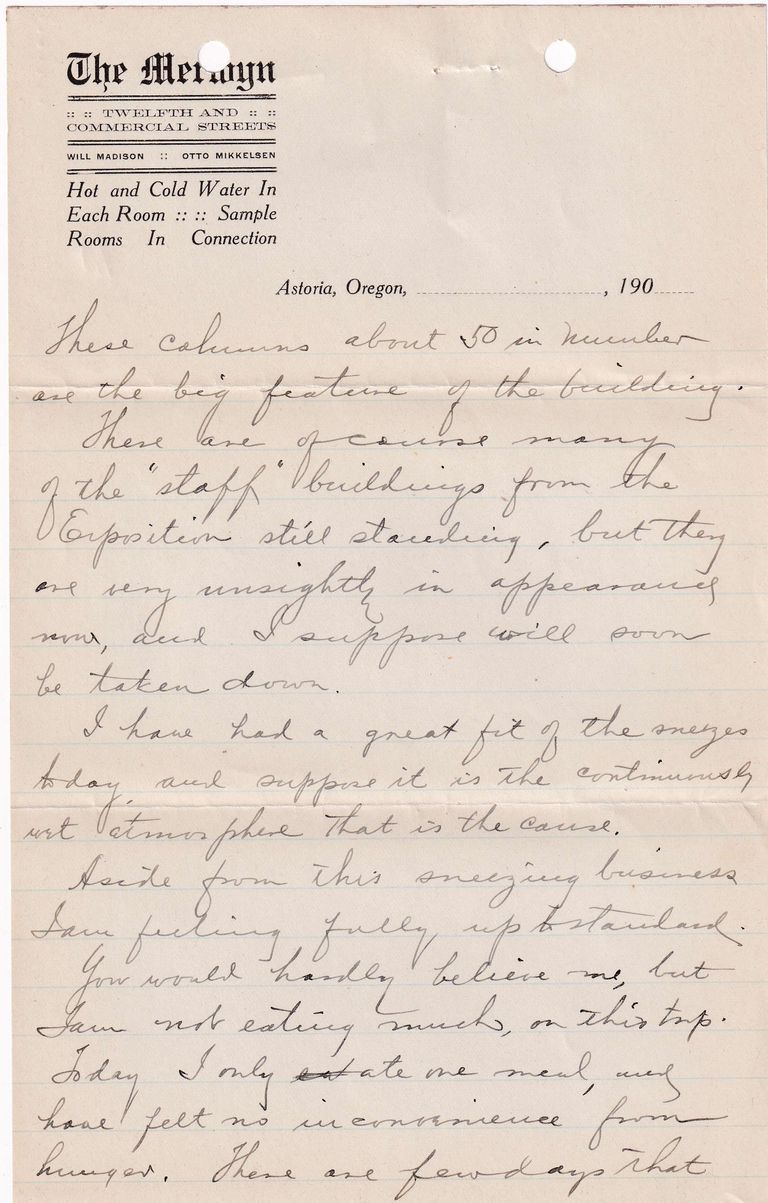 The Merwyn
:: :: TWELFTH AND :: ::
COMMERCIAL STREETS
WILL MADISON :: OTTO MIKKELSEN
Hot and Cold Water In
Each Room :: :: Sample
Rooms In Connection
Astoria, Oregon, , 190
These columns about 50 in number
are the big feature of the building.
There are of course many
of the "staff" buildings from the
Exposition still standing, but they
are very unsightly in appearance
now, and I suppose will soon
be taken down.
I have had a great fit of the sneezes
today, and suppose it is the continuously
wet atmosphere that is the cause.
Aside from this sneezing business
I am feeling fully up to standard.
You would hardly believe me, but
I am not eating much, on this trip.
Today I only eat ate one meal, and
have felt no inconvenience from
hunger. There are few days that